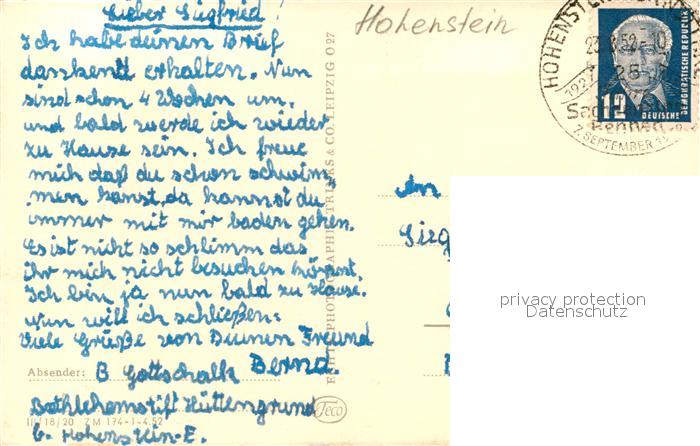 Lieber Siegfried!
Ich habe deinen Brief
dankend erhalten. Nun
sind schon 4 Wochen um,
und bald werde ich wieder
zu Hause sein. Ich freue
mich daß du schon schwim,
men kanst, da kannst du
immer mit mir baden gehen.
Es ist nicht so schlimm das
ihr mich nicht besuchen könnt.
Ich bin ja nun bald zu Hause.
Nun will ich schließen:
Viele Grüße von Deinem Freund
Bernd.
Absender: B Gottschalk
Bethlehemstift Hüttengrund
b. Hohenstein-E.
III/18/20 ZM 174-1-4.52
Teco
TRINKS & CO., LEIPZIG O 27
Hohenstein
HOHENSTEIN-
1927
Sachsenring
Rennen
7. SEPTEMBER
12
DEUTSCHE
DEMOKRATISCHE REPUBLIK
An
privacy protection
Datenschutz